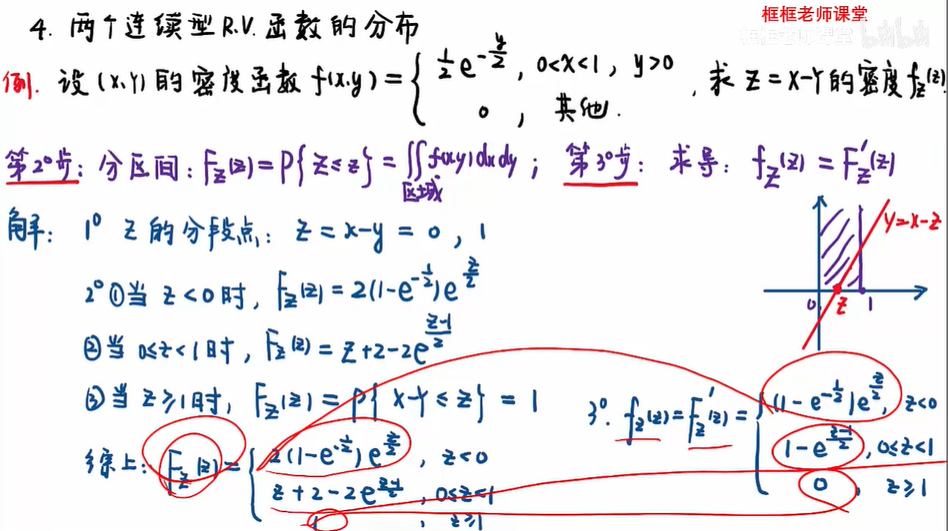 框框老师课堂
4. 两个连续型R.V.函数的分布
框框老师课堂 bilibili
例. 设(X,Y)的密度函数f(x,y)={ 1/2 e^{-y/2}, 0<x<1, y>0
0, 其他.
, 求Z=X-Y的密度f_Z(z).
第2°步: 分区间: F_Z(z)=P{Z≤z}=∬_{区域}f(x,y)dxdy; 第3°步: 求导: f_Z(z)=F_Z'(z)
解: 1° Z的分段点: z=x-y=0, 1
y=x-z
0 z 1
2° ①当z<0时, F_Z(z)=2(1-e^{-1/2})e^{z/2}
②当0≤z<1时, F_Z(z)=z+2-2e^{(z-1)/2}
③当z≥1时, F_Z(z)=P{X-Y≤z}=1
3°. f_Z(z)=F_Z'(z)={ (1-e^{-1/2})e^{z/2}, z<0
1-e^{(z-1)/2}, 0≤z<1
0, z≥1
综上: F_Z(z)={ 2(1-e^{-1/2})e^{z/2}, z<0
z+2-2e^{(z-1)/2}, 0≤z<1
1, z≥1